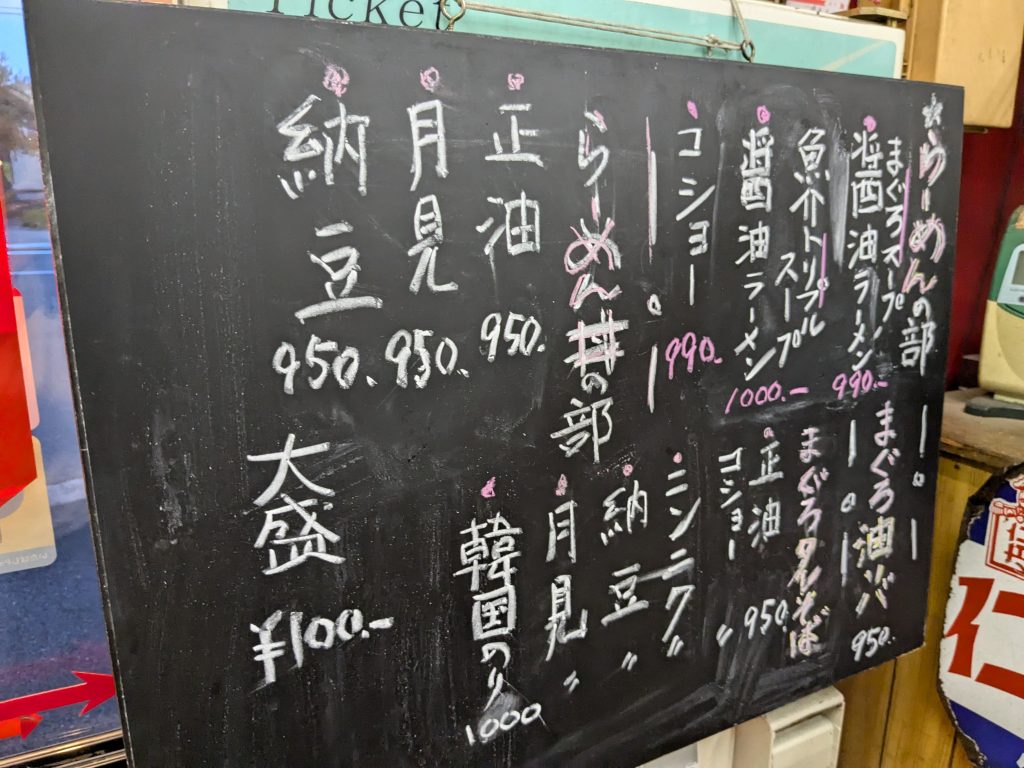 Ticket
☆らーめんの部
まぐろスープ
醤油ラーメン
990.-
魚介トリプル
スープ
醤油ラーメン
1000.-
コショー
990.
らーめん丼の部
正油
950.
月見
950.
納豆
950.
まぐろ油ソバ
950.
まぐろタンそば
正油
950
コショー
〃
ニンニク〃
納豆
〃
月見
〃
韓国のり
1000
大盛
¥100.-